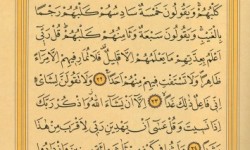 كَلْبُهُمْ وَيَقُولُونَ خَمْسَةٌ سَادِسُهُمْ كَلْبُهُمْ رَجْمًا
بِالْغَيْبِ وَيَقُولُونَ سَبْعَةٌ وَثَامِنُهُمْ كَلْبُهُمْ قُل رَّبِّي
أَعْلَمُ بِعِدَّتِهِم مَّا يَعْلَمُهُمْ إِلَّا قَلِيلٌ فَلَا تُمَارِ فِيهِمْ إِلَّا مِرَاءً
ظَاهِرًا وَلَا تَسْتَفْتِ فِيهِم مِّنْهُمْ أَحَدًا ٢٢ وَلَا تَقُولَنَّ لِشَيْءٍ
إِنِّي فَاعِلٌ ذَٰلِكَ غَدًا ٢٣ إِلَّا أَن يَشَاءَ اللَّهُ وَاذْكُر رَّبَّكَ
إِذَا نَسِيتَ وَقُلْ عَسَىٰ أَن يَهْدِيَنِ رَبِّي لِأَقْرَبَ مِنْ هَٰذَا